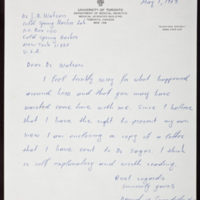 UNIVERSITY OF TORONTO
DEPARTMENT OF MEDICAL GENETICS
MEDICAL SCIENCES BUILDING
TORONTO, CANADA
May 1, 19
Dr J. D. Watson
Cold Spring Harbor Lab
P.O. Box 100
Cold Spring Harbor
New York 11724
U.S.A
Dear Dr Watson
I feel terribly sorry for what happened
around here and that you may have
wasted some time with me. Since I believe
that I have the right to present my own
view I am enclosing a copy of a letter
that I have sent to Dr. which is
self explanatory and worth reading.
Best regards
sincerely yours